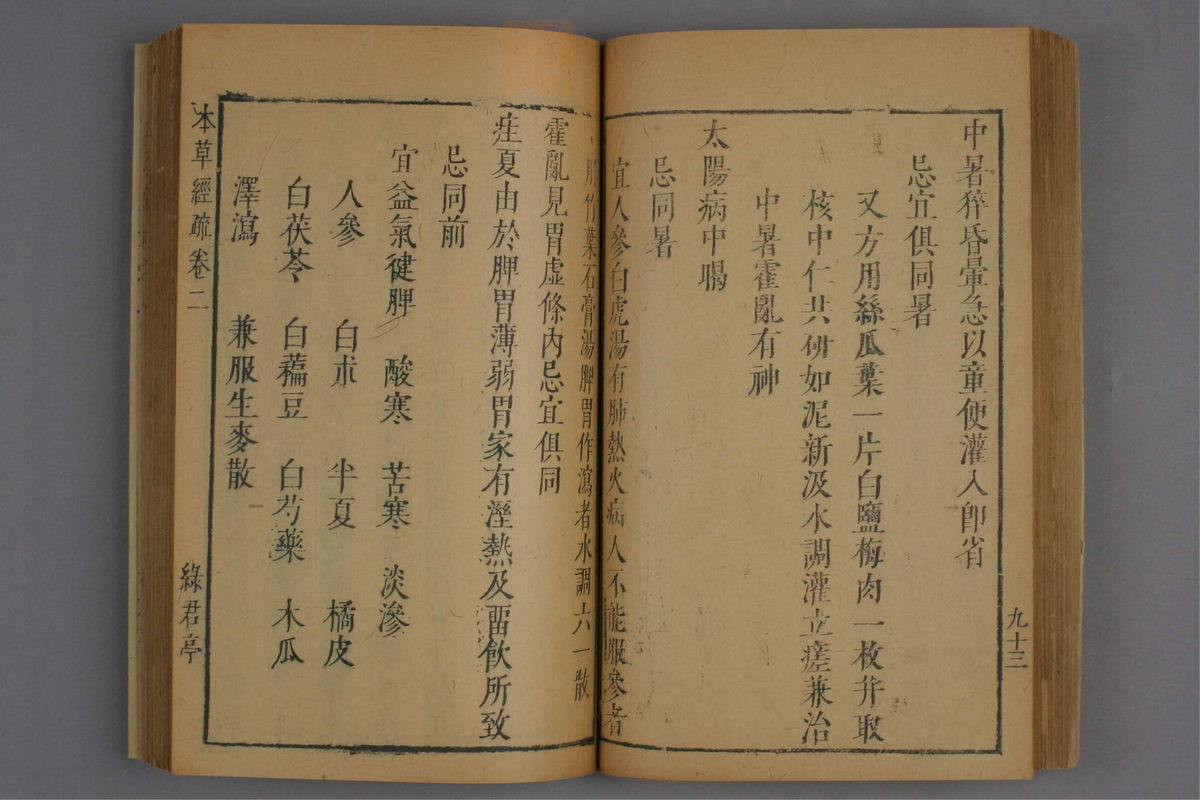 中暑猝昏暈急以童便灌入卽省
忌宜俱同暑
又方用絲瓜葉一片白鹽梅肉一枚幷取
核中仁共硏如泥新汲水調灌立瘥兼治
中暑霍亂有神
太陽病中暍
忌同暑
宜人參白虎湯有肺熱火病人不能服參者
用竹葉石膏湯脾胃作瀉者水調六一散
九十三
霍亂見胃虛條內忌宜俱同
疰夏由於脾胃薄弱胃家有溼熱及畱飮所致
忌同前
宜益氣健脾 酸寒 苦寒 淡滲
人參 白朮 半夏 橘皮
白茯苓 白藊豆 白芍藥 木瓜
澤瀉 兼服生麥散
本草經疏 卷二
綠君亭